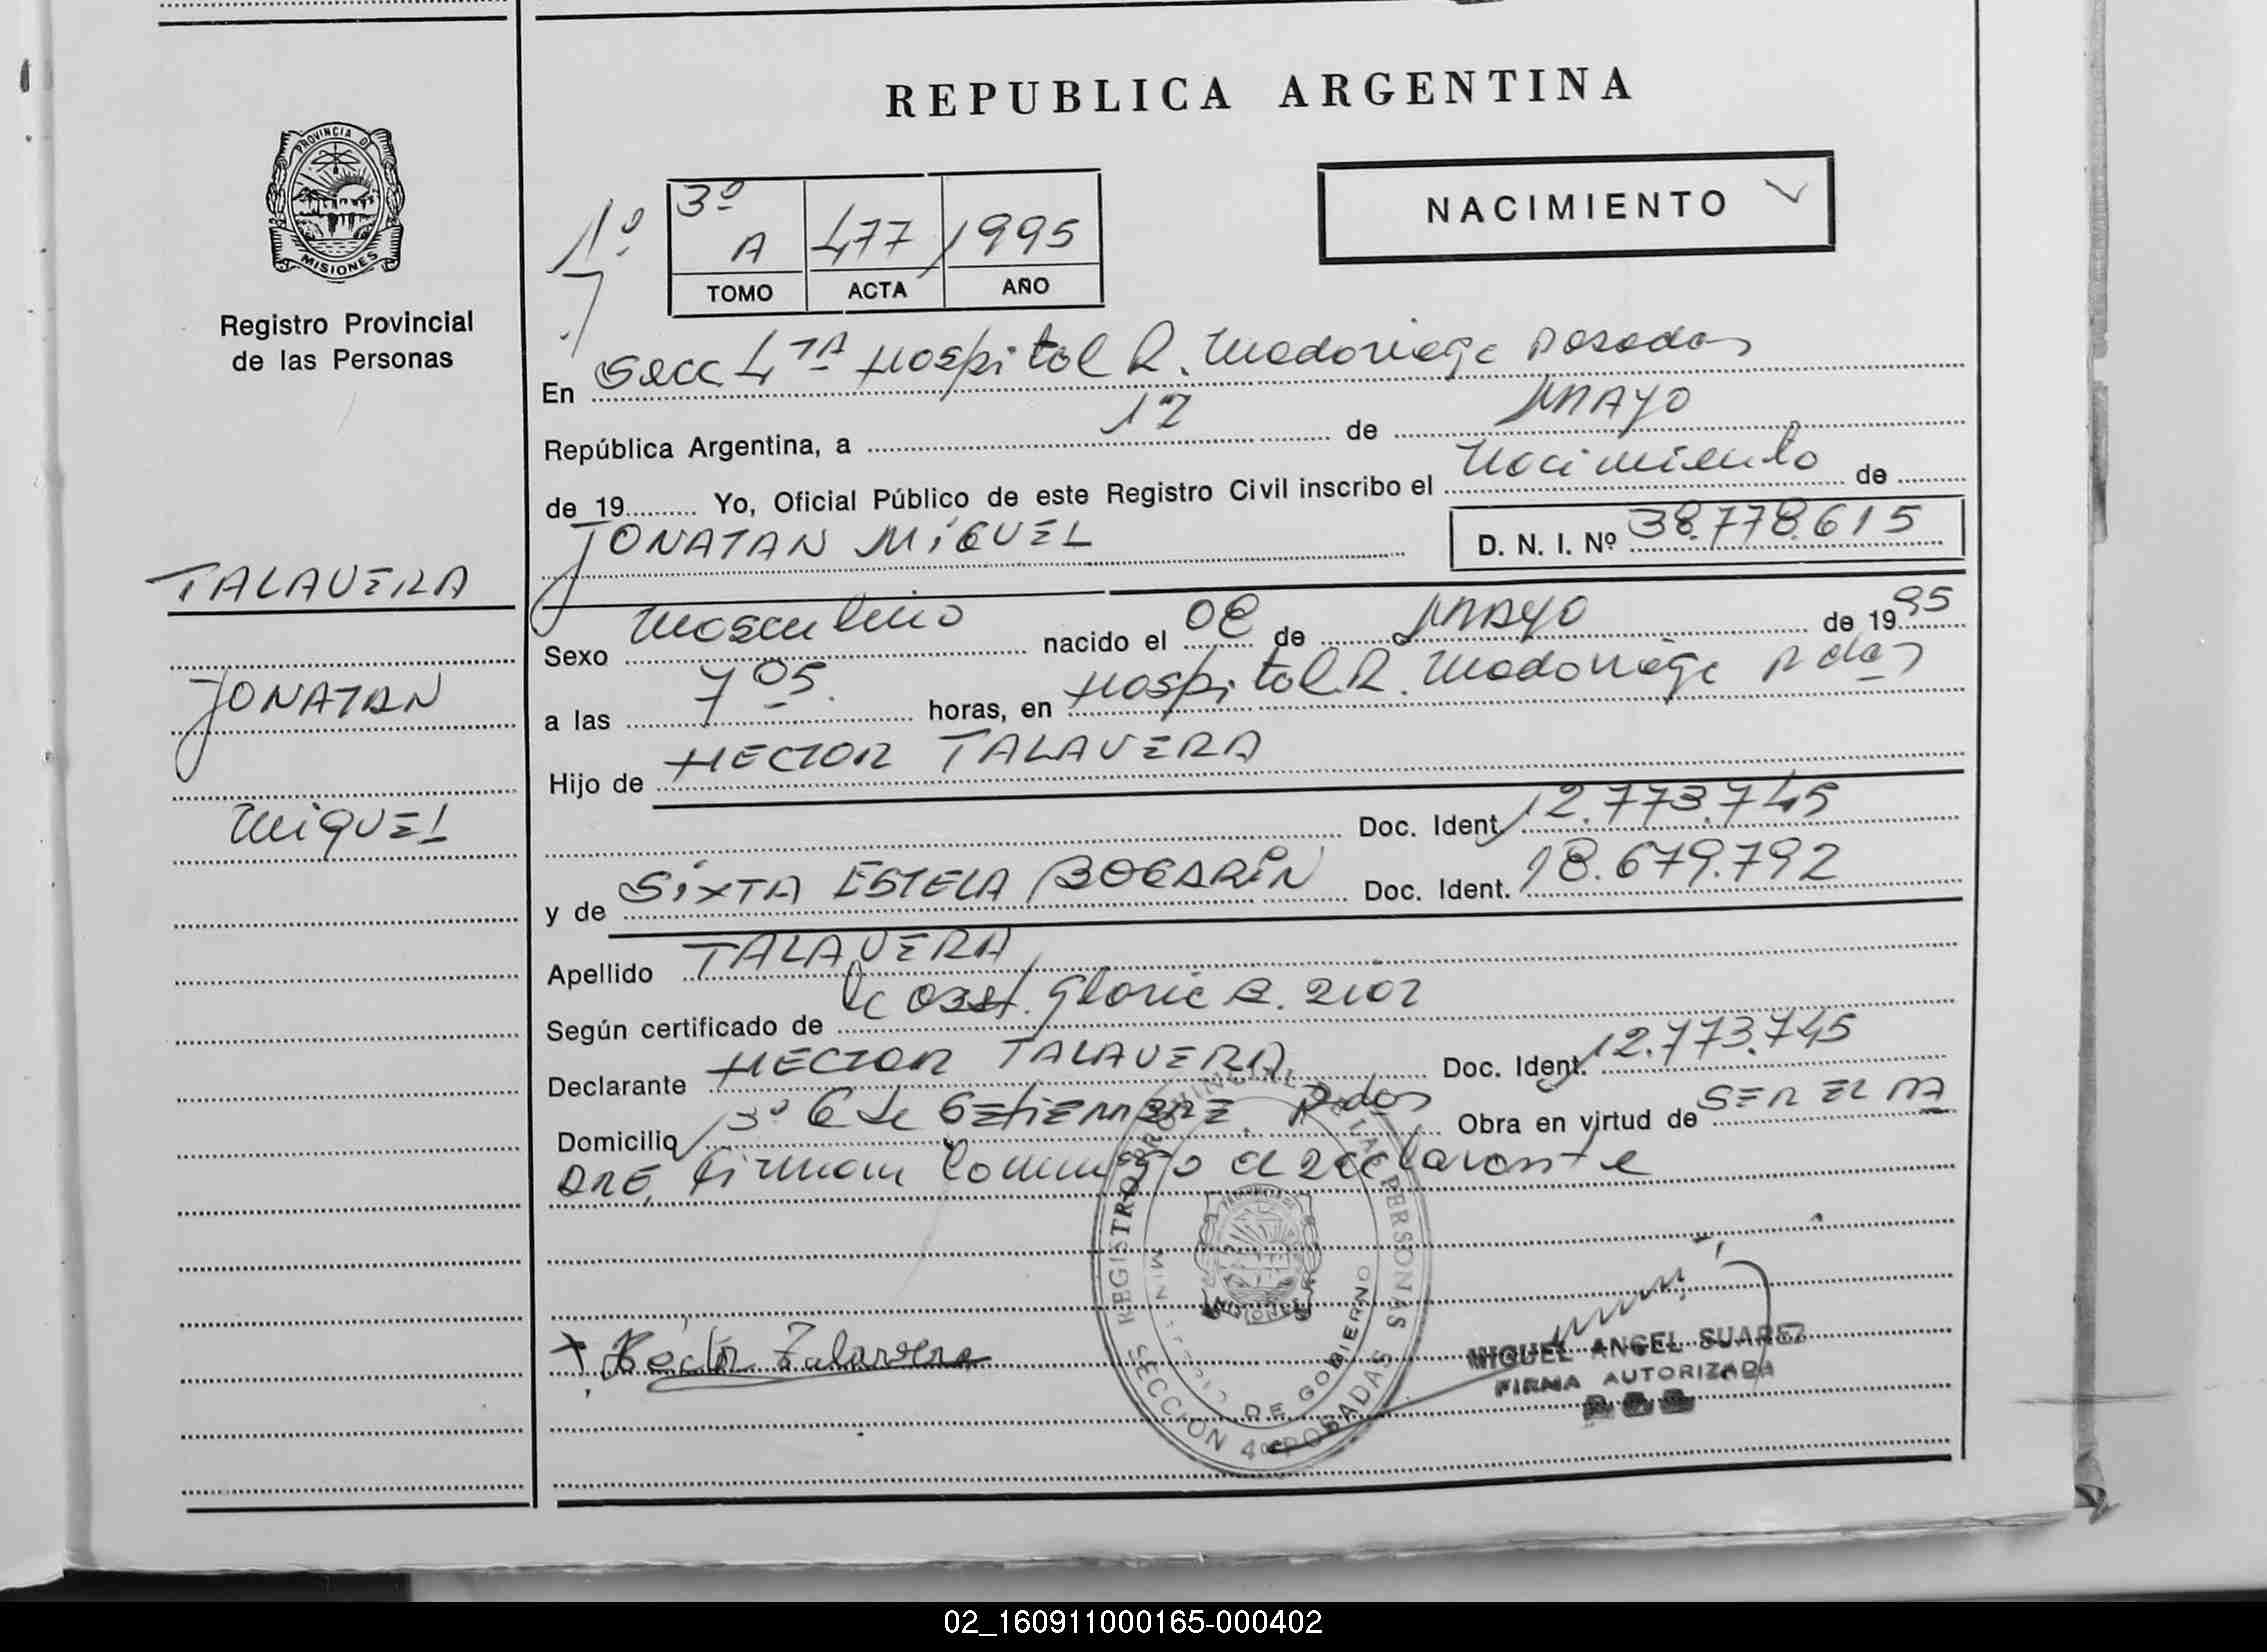 REPUBLICA ARGENTINA
PROVINCIA D
MISIONES
Registro Provincial
de las Personas
1º
3º
A 477 1995
TOMO ACTA AÑO
NACIMIENTO
En Secc 4TA Hospital R. Madariaga Posadas
República Argentina, a 12 de MAYO
de 19 Yo, Oficial Público de este Registro Civil inscribo el Nacimiento de
JONATAN MIGUEL
D. N. I. Nº 38.778.615
TALAVERA
JONATAN
MIGUEL
Sexo Masculino nacido el 08 de MAYO de 1995
a las 7 05 horas, en Hospital R. Madariaga Pdas
Hijo de HECTOR TALAVERA
Doc. Ident. 12.773.745
y de SIXTA ESTELA BOGARIN Doc. Ident. 18.679.792
Apellido TALAVERA
Según certificado de Obst. Gloria
Declarante HECTOR TALAVERA Doc. Ident. 12.773.745
Domicilio Bº 6 de SETIEMBRE. Pdas Obra en virtud de SER EL PA
DRE, Firman conmigo el declarante
REGISTRO PROVINCIAL DE LAS PERSONAS
MINISTERIO DE GOBIERNO
MISIONES
SECCION 4ª POSADAS
Hector Talavera
MIGUEL ANGEL SUAREZ
FIRMA AUTORIZADA
02_160911000165-000402